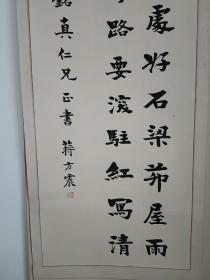 處好石梁茆屋雨
路要滾駐紅寫清
真仁兄正書 蔣方震